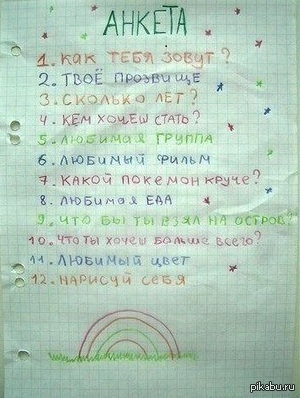 АНКЕТА
1. КАК ТЕБЯ ЗОВУТ?
2. ТВОЁ ПРОЗВИЩЕ
3. СКОЛЬКО ЛЕТ?
4. КЕМ ХОЧЕШ СТАТЬ?
5. ЛЮБИМАЯ ГРУППА
6. ЛЮБИМЫЙ ФИЛЬМ
7. КАКОЙ ПОКЕМОН КРУЧЕ?
8. ЛЮБИМАЯ ЕДА
9. ЧТО БЫ ТЫ ВЗЯЛ НА ОСТРОВ?
10. ЧТО ТЫ ХОЧЕШ БОЛЬШЕ ВСЕГО?
11. ЛЮБИМЫЙ ЦВЕТ
12. НАРИСУЙ СЕБЯ
pikabu.ru